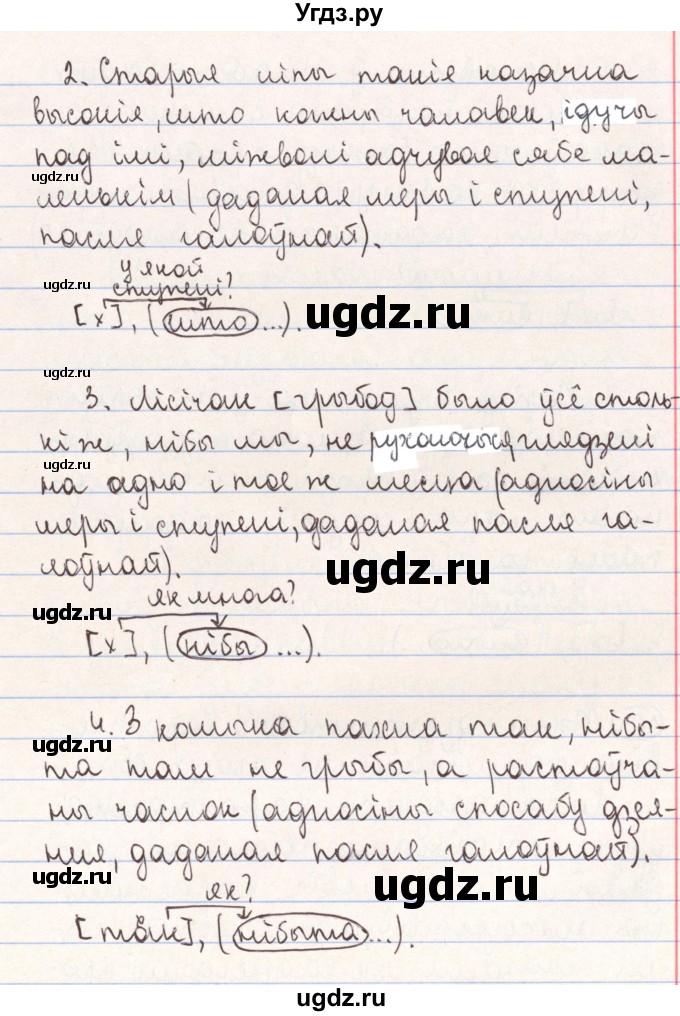 Угдз.ру
2. Старыя ліпы такія казачна
высокія, што кожны чалавек, ідучы
пад імі, міжволі адчувае сябе ма-
ugdz.ru
ленькім (даданая меры і ступені,
пасля галоўнай).
ugdz.ru
у якой
ступені?
[х], (што...).
ugdz.ru
ugdz.ru
ugdz.ru
3. Лісічак [грыбоў] было ўсё столь-
кі ж, нібы мы, не рухаючыся, глядзелі
ugdz.ru
на адно і тое ж месца (адносіны
меры і ступені, даданая пасля га-
лоўнай).
ugdz.ru
ugdz.ru
як многа?
[х], (нібы ...).
4. З кошыка пахла так, нібы-
ugdz.ru
та там не грыбы, а растоўча-
ны часнок (адносіны спосабу дзея-
ння, даданая пасля галоўнай).
ugdz.ru
ugdz.ru
як?
[так], (нібыта...).
ugdz.ru
ugdz.ru